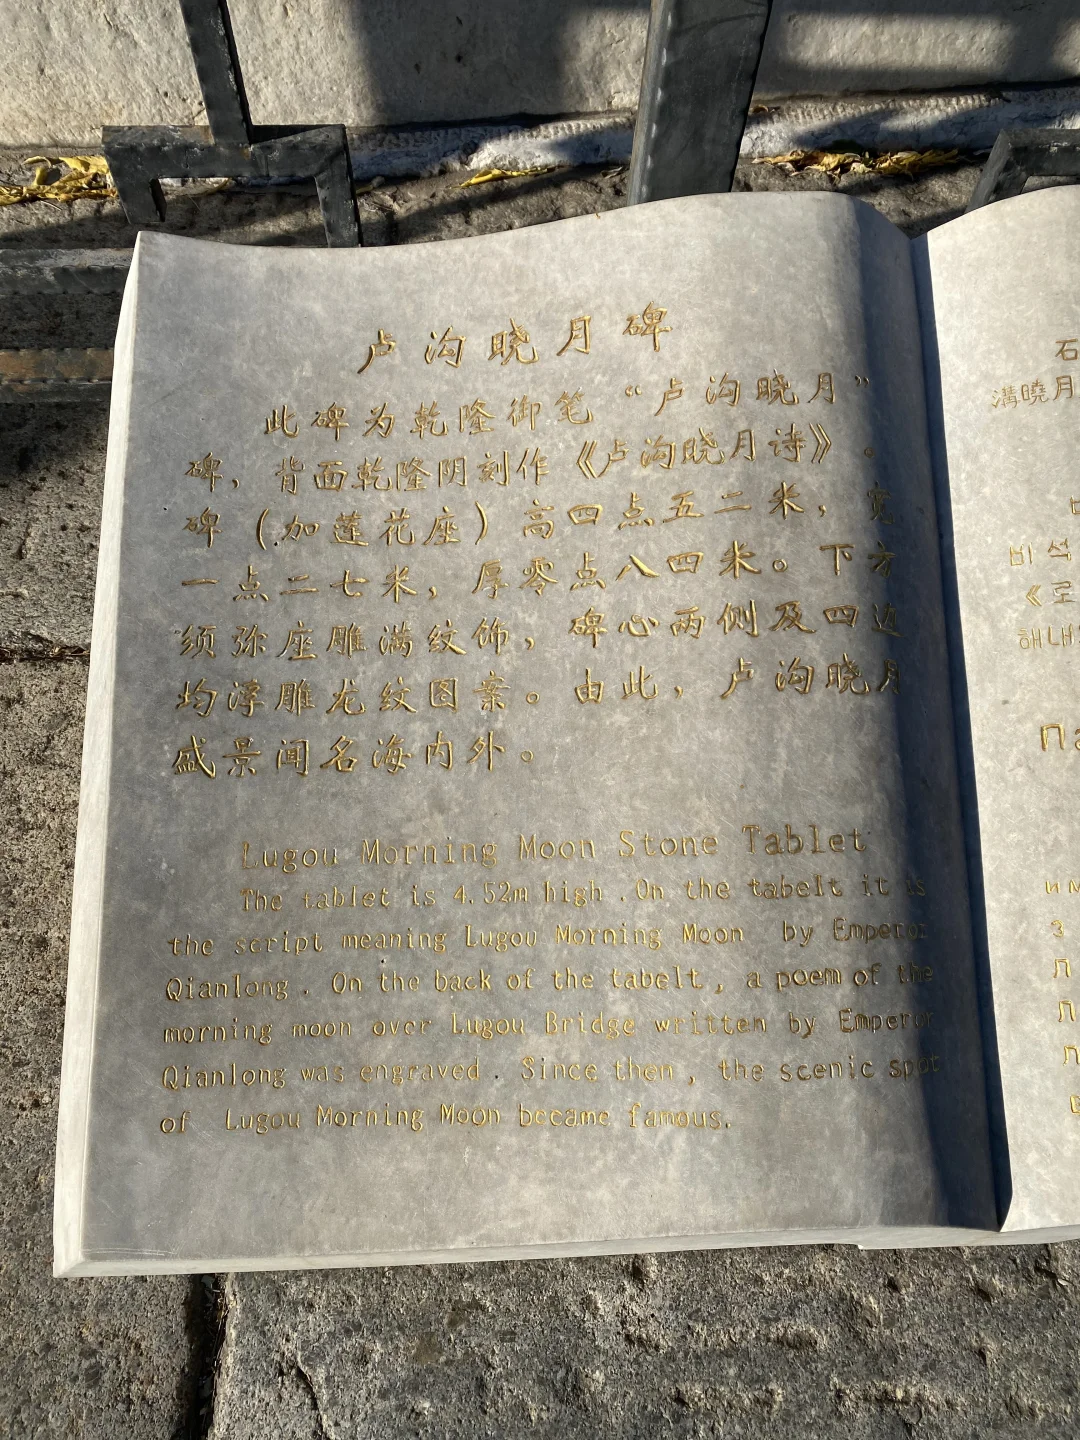 卢沟晓月碑
此碑为乾隆御笔“卢沟晓月”
碑，背面乾隆阴刻作《卢沟晓月诗》。
碑（加莲花座）高四点五二米，宽
一点二七米，厚零点八四米。下方
须弥座雕满纹饰，碑心两侧及四边
均浮雕龙纹图案。由此，卢沟晓月
盛景闻名海内外。
Lugou Morning Moon Stone Tablet
The tablet is 4.52m high .On the tabelt it is
the script meaning Lugou Morning Moon by Emperor
Qianlong . On the back of the tabelt, a poem of the
morning moon over Lugou Bridge written by Emperor
Qianlong was engraved . Since then, the scenic spot
of Lugou Morning Moon became famous.
石
溝曉月
비석
《로
해내
Па
им
З
П
П
П